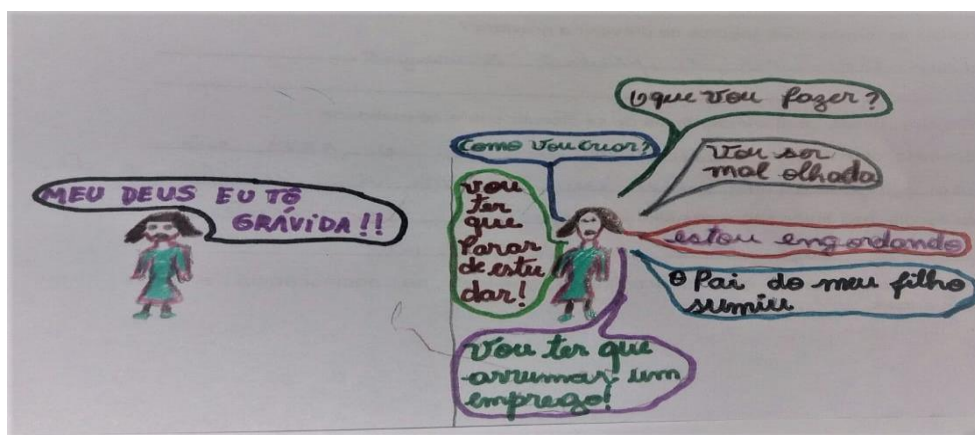 MEU DEUS EU TÔ
GRÁVIDA!!
O que vou fazer?
Como vou criar?
Vou ser
mal olhada
vou
ter
que
Parar
de estu
dar!
estou engordando
O Pai do meu filho
sumiu
Vou ter que
arrumar um
emprego!